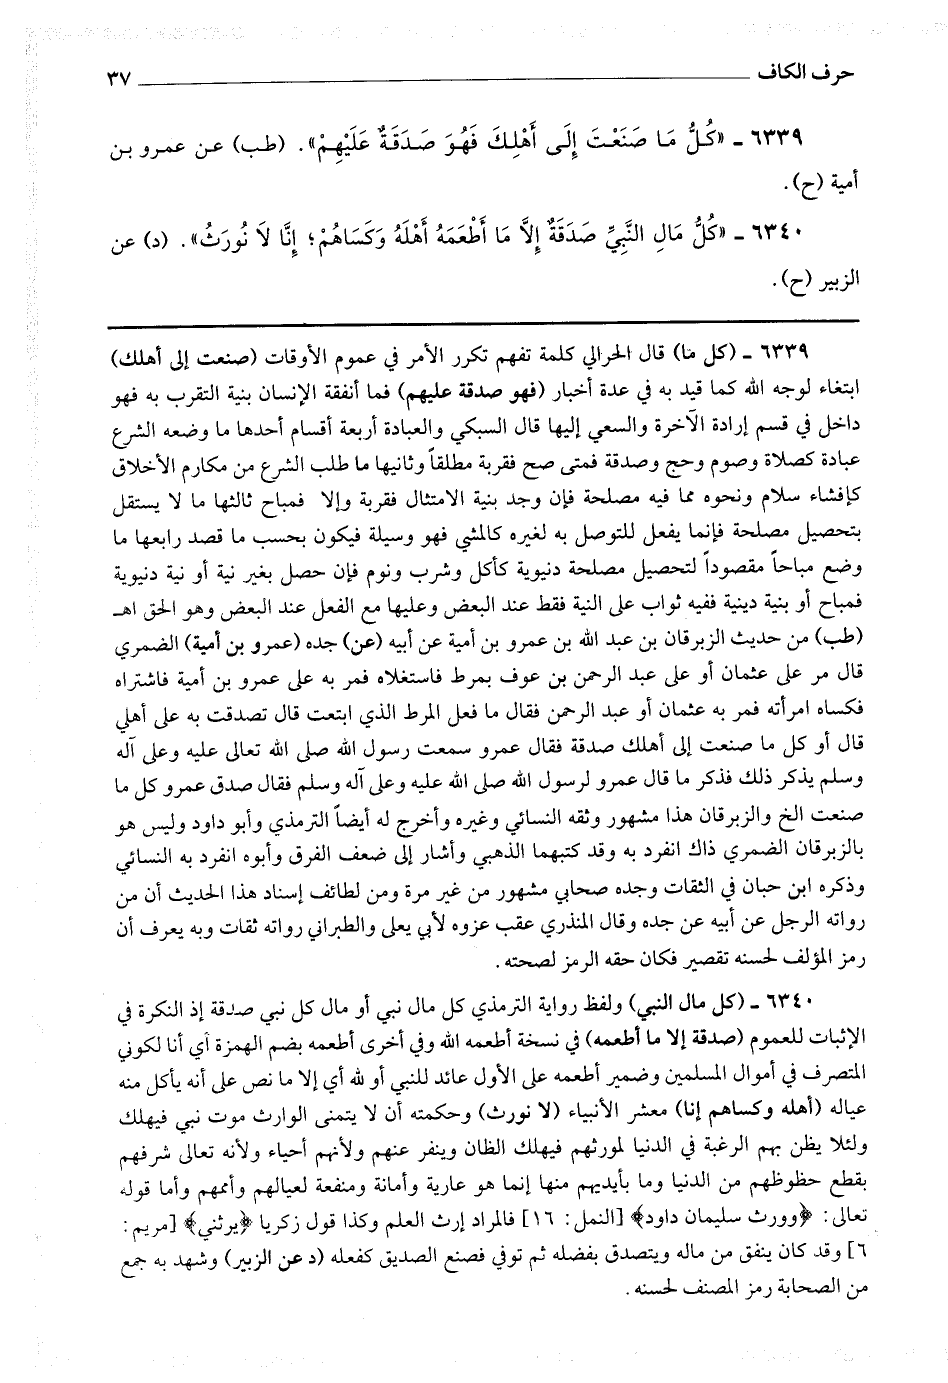 حرف الكاف ٣٧
٦٣٣٩ ـ «كُلُّ مَا صَنَعْتَ إِلَى أَهْلِكَ فَهُوَ صَدَقَةٌ عَلَيْهِمْ». (طب) عن عمرو بن
أمية (ح).
٦٣٤٠ ـ «كُلُّ مَالِ النَّبِيِّ صَدَقَةٌ إِلَّا مَا أَطْعَمَهُ أَهْلَهُ وَكَسَاهُمْ؛ إِنَّا لَا نُورَثُ». (د) عن
الزبير (ح).
٦٣٣٩ ـ (كل ما) قال الحرالي كلمة تفهم تكرر الأمر في عموم الأوقات (صنعت إلى أهلك)
ابتغاء لوجه الله كما قيد به في عدة أخبار (فهو صدقة عليهم) فما أنفقة الإنسان بنية التقرب به فهو
داخل في قسم إرادة الآخرة والسعي إليها قال السبكي والعبادة أربعة أقسام أحدها ما وضعه الشرع
عبادة كصلاة وصوم وحج وصدقة فمتى صح فقربة مطلقاً وثانيها ما طلب الشرع من مكارم الأخلاق
كإفشاء سلام ونحوه مما فيه مصلحة فإن وجد بنية الامتثال فقربة وإلا فمباح ثالثها ما لا يستقل
بتحصيل مصلحة فإنما يفعل للتوصل به لغيره كالمشي فهو وسيلة فيكون بحسب ما قصد رابعها ما
وضع مباحاً مقصوداً لتحصيل مصلحة دنيوية كأكل وشرب ونوم فإن حصل بغير نية أو نية دنيوية
فمباح أو بنية دينية ففيه ثواب على النية فقط عند البعض وعليها مع الفعل عند البعض وهو الحق اهـ
(طب) من حديث الزبرقان بن عبد الله بن عمرو بن أمية عن أبيه (عن) جده (عمرو بن أمية) الضمري
قال مر على عثمان أو على عبد الرحمن بن عوف بمرط فاستغلاه فمر به على عمرو بن أمية فاشتراه
فكساه امرأته فمر به عثمان أو عبد الرحمن فقال ما فعل المرط الذي ابتعت قال تصدقت به على أهلي
قال أو كل ما صنعت إلى أهلك صدقة فقال عمرو سمعت رسول الله صلى الله تعالى عليه وعلى آله
وسلم يذكر ذلك فذكر ما قال عمرو لرسول الله صلى الله عليه وعلى آله وسلم فقال صدق عمرو كل ما
صنعت الخ والزبرقان هذا مشهور وثقه النسائي وغيره وأخرج له أيضاً الترمذي وأبو داود وليس هو
بالزبرقان الضمري ذاك انفرد به وقد كتبهما الذهبي وأشار إلى ضعف الفرق وأبوه انفرد به النسائي
وذكره ابن حبان في الثقات وجده صحابي مشهور من غير مرة ومن لطائف إسناد هذا الحديث أن من
رواته الرجل عن أبيه عن جده وقال المنذري عقب عزوه لأبي يعلى والطبراني رواته ثقات وبه يعرف أن
رمز المؤلف لحسنه تقصير فكان حقه الرمز لصحته.
٦٣٤٠ ـ (كل مال النبي) ولفظ رواية الترمذي كل مال نبي أو مال كل نبي صدقة إذ النكرة في
الإثبات للعموم (صدقة إلا ما أطعمه) في نسخة أطعمه الله وفي أخرى أطعمه بضم الهمزة أي أنا لكوني
المتصرف في أموال المسلمين وضمير أطعمه على الأول عائد للنبي أو لله أي إلا ما نص على أنه يأكل منه
عياله (أهله وكساهم إنا) معشر الأنبياء (لا نورث) وحكمته أن لا يتمنى الوارث موت نبي فيهلك
ولئلا يظن بهم الرغبة في الدنيا لمورثهم فيهلك الظان وينفر عنهم ولأنهم أحياء ولأنه تعالى شرفهم
بقطع حظوظهم من الدنيا وما بأيديهم منها إنما هو عارية وأمانة ومنفعة لعيالهم وأممهم وأما قوله
تعالى: ﴿وورث سليمان داود﴾ [النمل: ١٦] فالمراد إرث العلم وكذا قول زكريا ﴿يرثني﴾ [مريم:
٦] وقد كان ينفق من ماله ويتصدق بفضله ثم توفي فصنع الصديق كفعله (د عن الزبير) وشهد به جمع
من الصحابة رمز المصنف لحسنه.